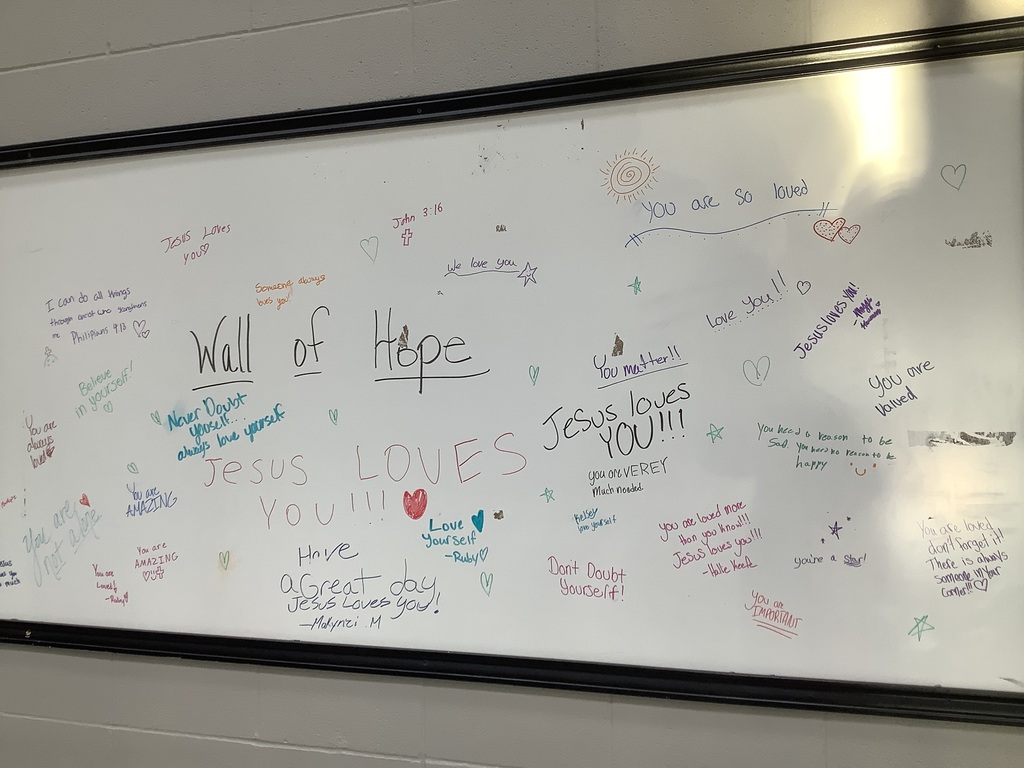 Jesus Loves
you
John 3:16
You are so loved
We love you
Someone always
loves you!
I can do all things
through
me
Philipians 4:13
Wall of Hope
Love You!!
Jesus loves you!
You matter!!
Believe
in yourself!
Never Doubt
yourself..
always love yourself
Jesus loves
YOU!!!
You are
Valued
You are
always
loved
Jesus LOVES
YOU!!!
you are VEREY
Much needed.
You need a reason to be
Sad you need no reason to be
happy
You are
AMAZING
You are
not alone
Love
Yourself
-Ruby
Kelsey
love yourself
you are loved more
than you know!!!
Jesus loves you!!!
-Halle
you're a Star!
You are loved
don't forget it!
There is always
someone in your
corner!!!
You are
AMAZING
You are
Loved!
-Ruby
Have
a Great day
Jesus Loves You!
-Makynzi .M
Dont Doubt
Yourself!
You are
IMPORTANT
you
much